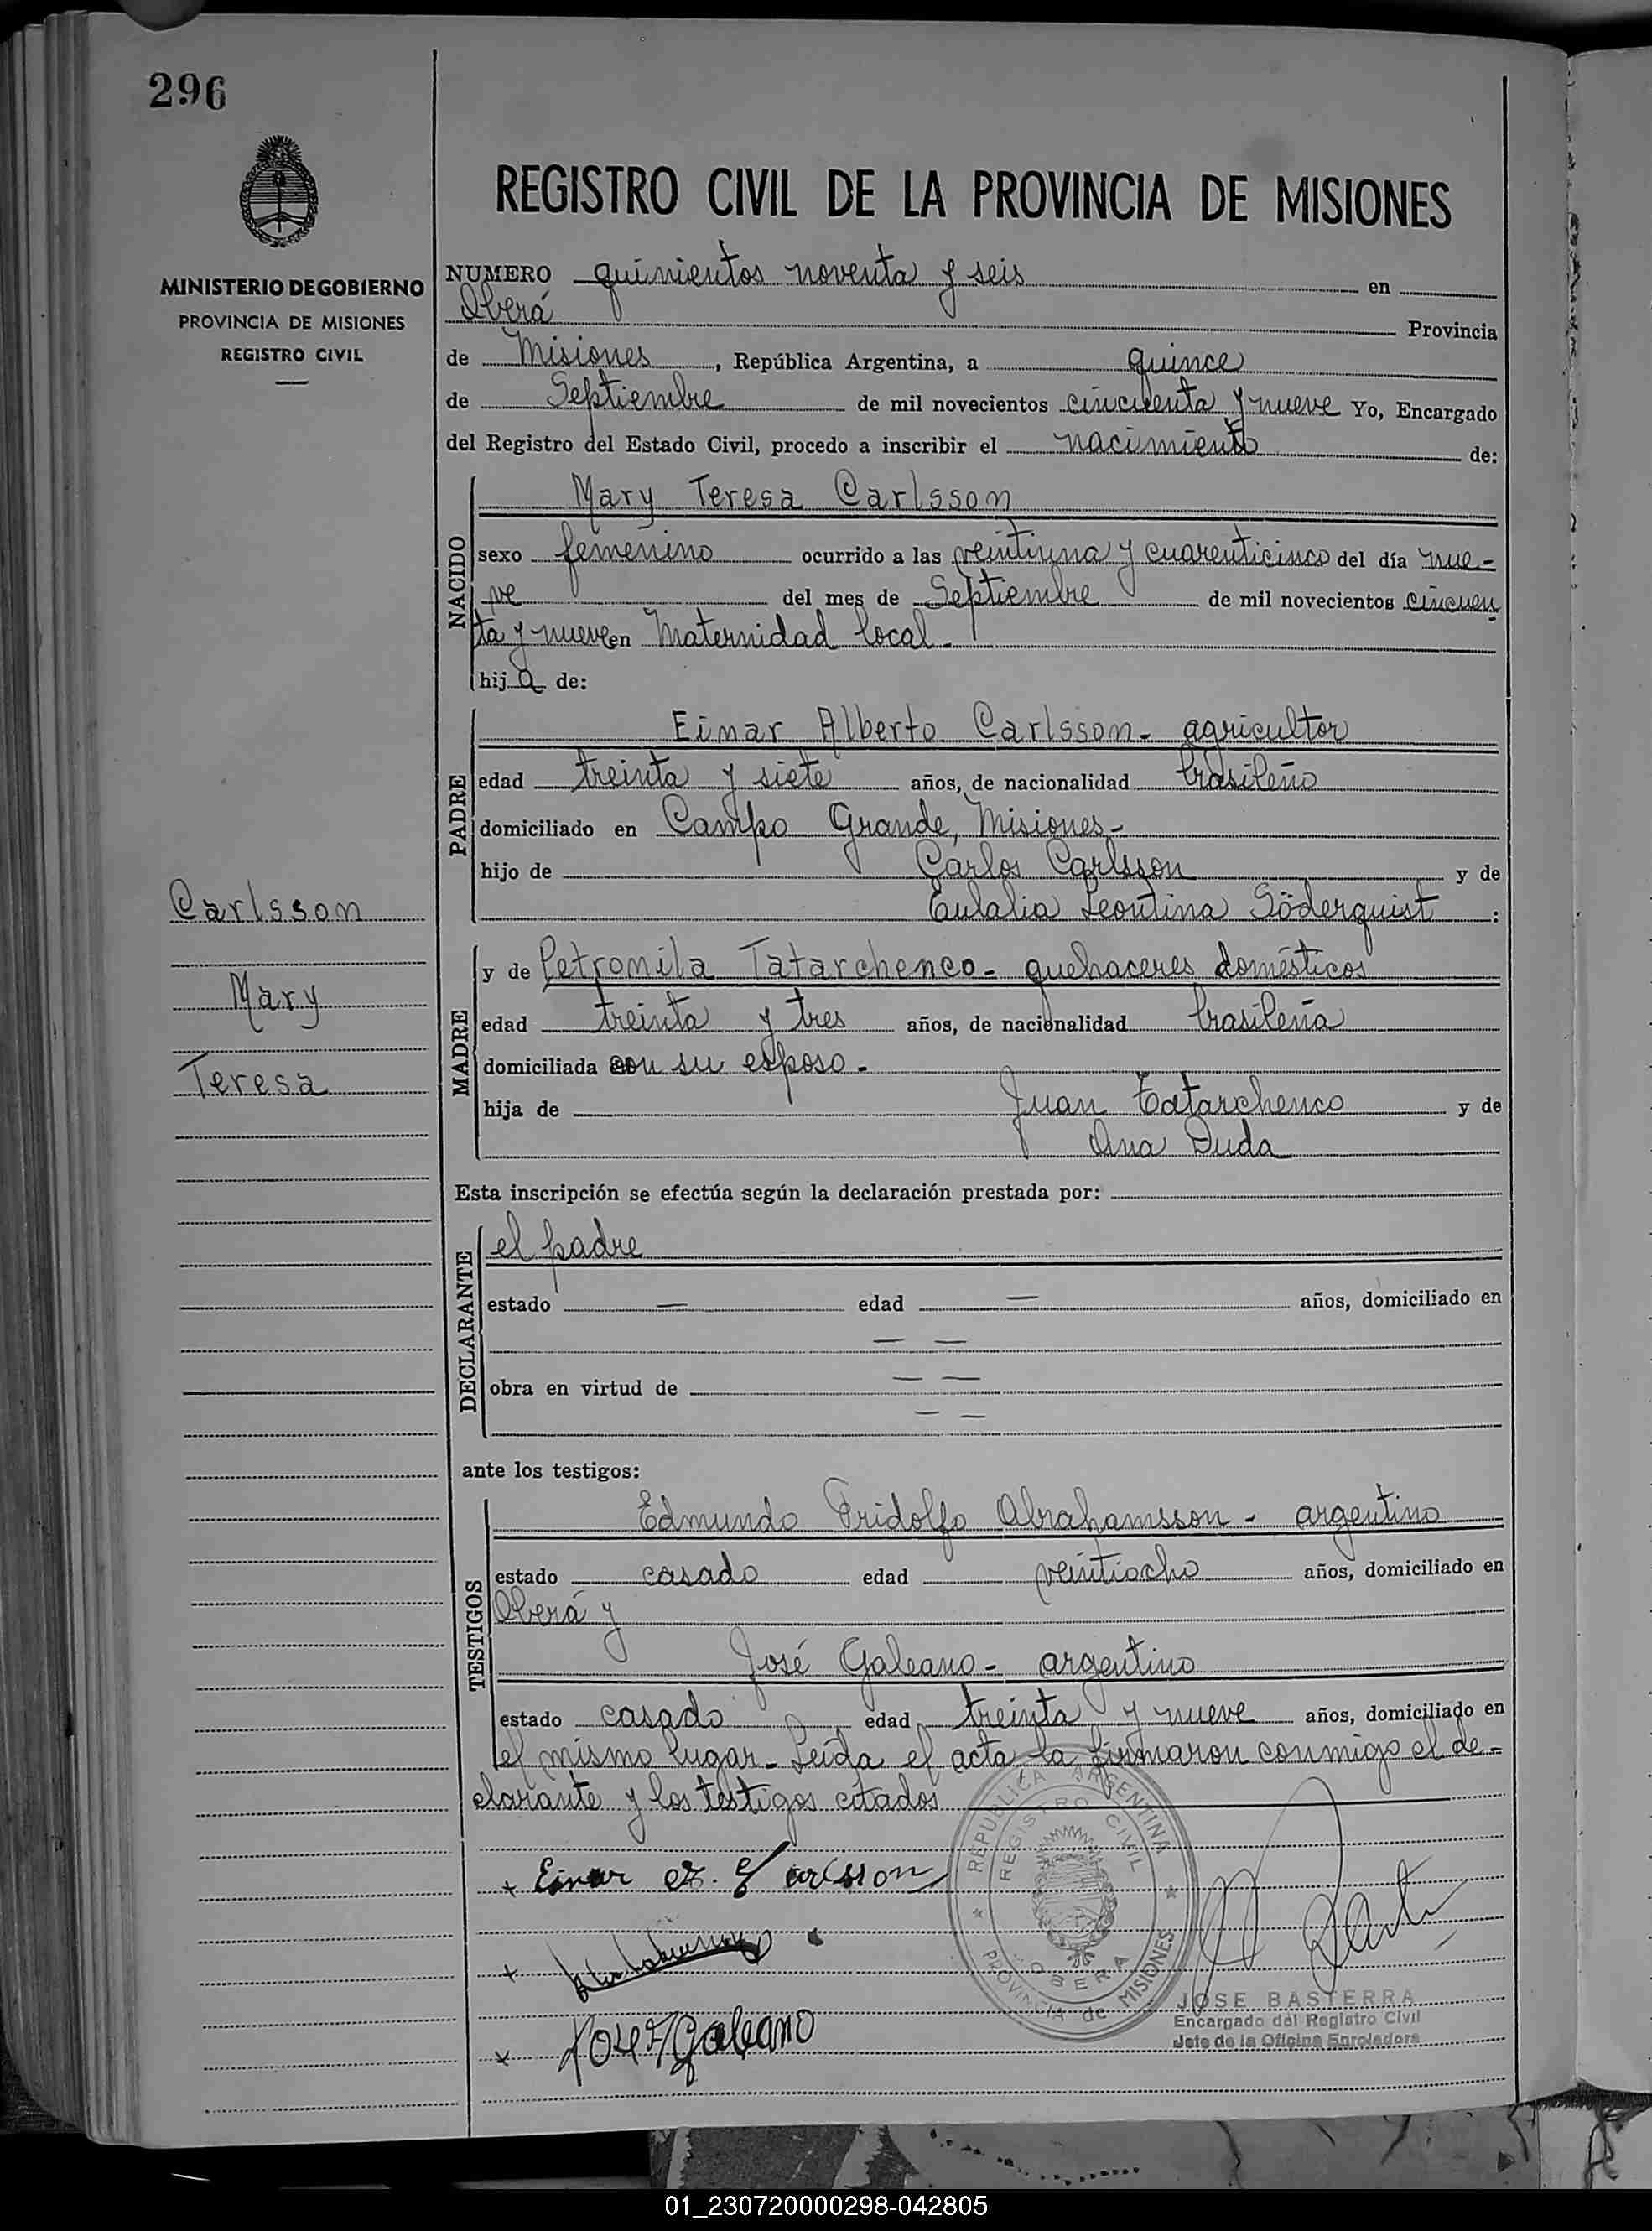 296
MINISTERIO DE GOBIERNO
PROVINCIA DE MISIONES
REGISTRO CIVIL
REGISTRO CIVIL DE LA PROVINCIA DE MISIONES
NUMERO quinientos noventa y seis en
Oberá Provincia
de Misiones, República Argentina, a quince
de Septiembre de mil novecientos cincuenta y nueve Yo, Encargado
del Registro del Estado Civil, procedo a inscribir el nacimiento de:
NACIDO
Mary Teresa Carlsson
sexo femenino ocurrido a las veintiuna y cuarenticinco del día nue-
ve del mes de Septiembre de mil novecientos cincuen
ta y nueve en Maternidad local.
hija de:
PADRE
Eimar Alberto Carlsson- agricultor
edad treinta y siete años, de nacionalidad brasileño
domiciliado en Campo Grande, Misiones-
hijo de Carlos Carlsson y de
Eulalia Leontina Söderquist :
Carlsson
Mary
Teresa
MADRE
y de Petromila Tatarchenco- quehaceres domésticos
edad treinta y tres años, de nacionalidad brasileña
domiciliada con su esposo.
hija de Juan Tatarchenco y de
Ana Duda
Esta inscripción se efectúa según la declaración prestada por:
DECLARANTE
el padre
estado — edad — años, domiciliado en
— —
obra en virtud de — —
— —
ante los testigos:
TESTIGOS
Edmundo Fridolfo Abrahamsson - argentino
estado casado edad veintiocho años, domiciliado en
Oberá y
José Galeano- argentino
estado casado edad treinta y nueve años, domiciliado en
el mismo lugar- Leída el acta la firmaron conmigo el de-
clarante y los testigos citados
REPUBLICA ARGENTINA
REGISTRO CIVIL
OBERA
PROVINCIA de MISIONES
JOSE BASTERRA
Encargado del Registro Civil
Jefe de la Oficina Enroladora
Galeano
01_230720000298-042805